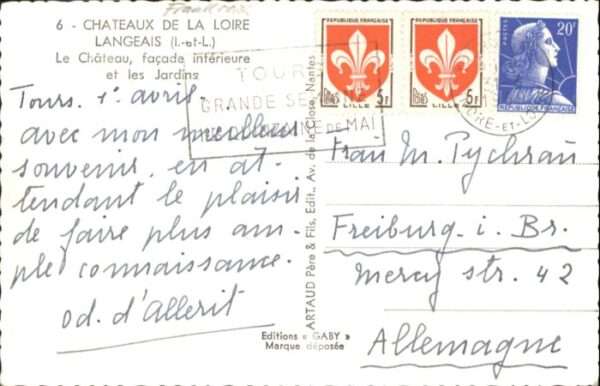 Frankreich
6 - CHATEAUX DE LA LOIRE
LANGEAIS (I.-et-L.)
Le Château, façade intérieure
et les Jardins
TOURS
GRANDE SE
DE MAI
Tours, 1º avril.
avec mon meilleur
souvenir, en at-
tendant le plaisir
de faire plus am-
ple connaissance.
od. d'Allerit
ARTAUD Père & Fils, Edit., Av. de la Close, Nantes
Editions « GABY »
Marque déposée
REPUBLIQUE FRANÇAISE
LILLE
Postes
5f
REPUBLIQUE FRANÇAISE
LILLE
Postes
5f
POSTES
20F
REPUBLIQUE FRANÇAISE
INDRE-ET-LOIRE
Frau M. Pychrau
Freiburg i. Br.
Mercy str. 42
Allemagne